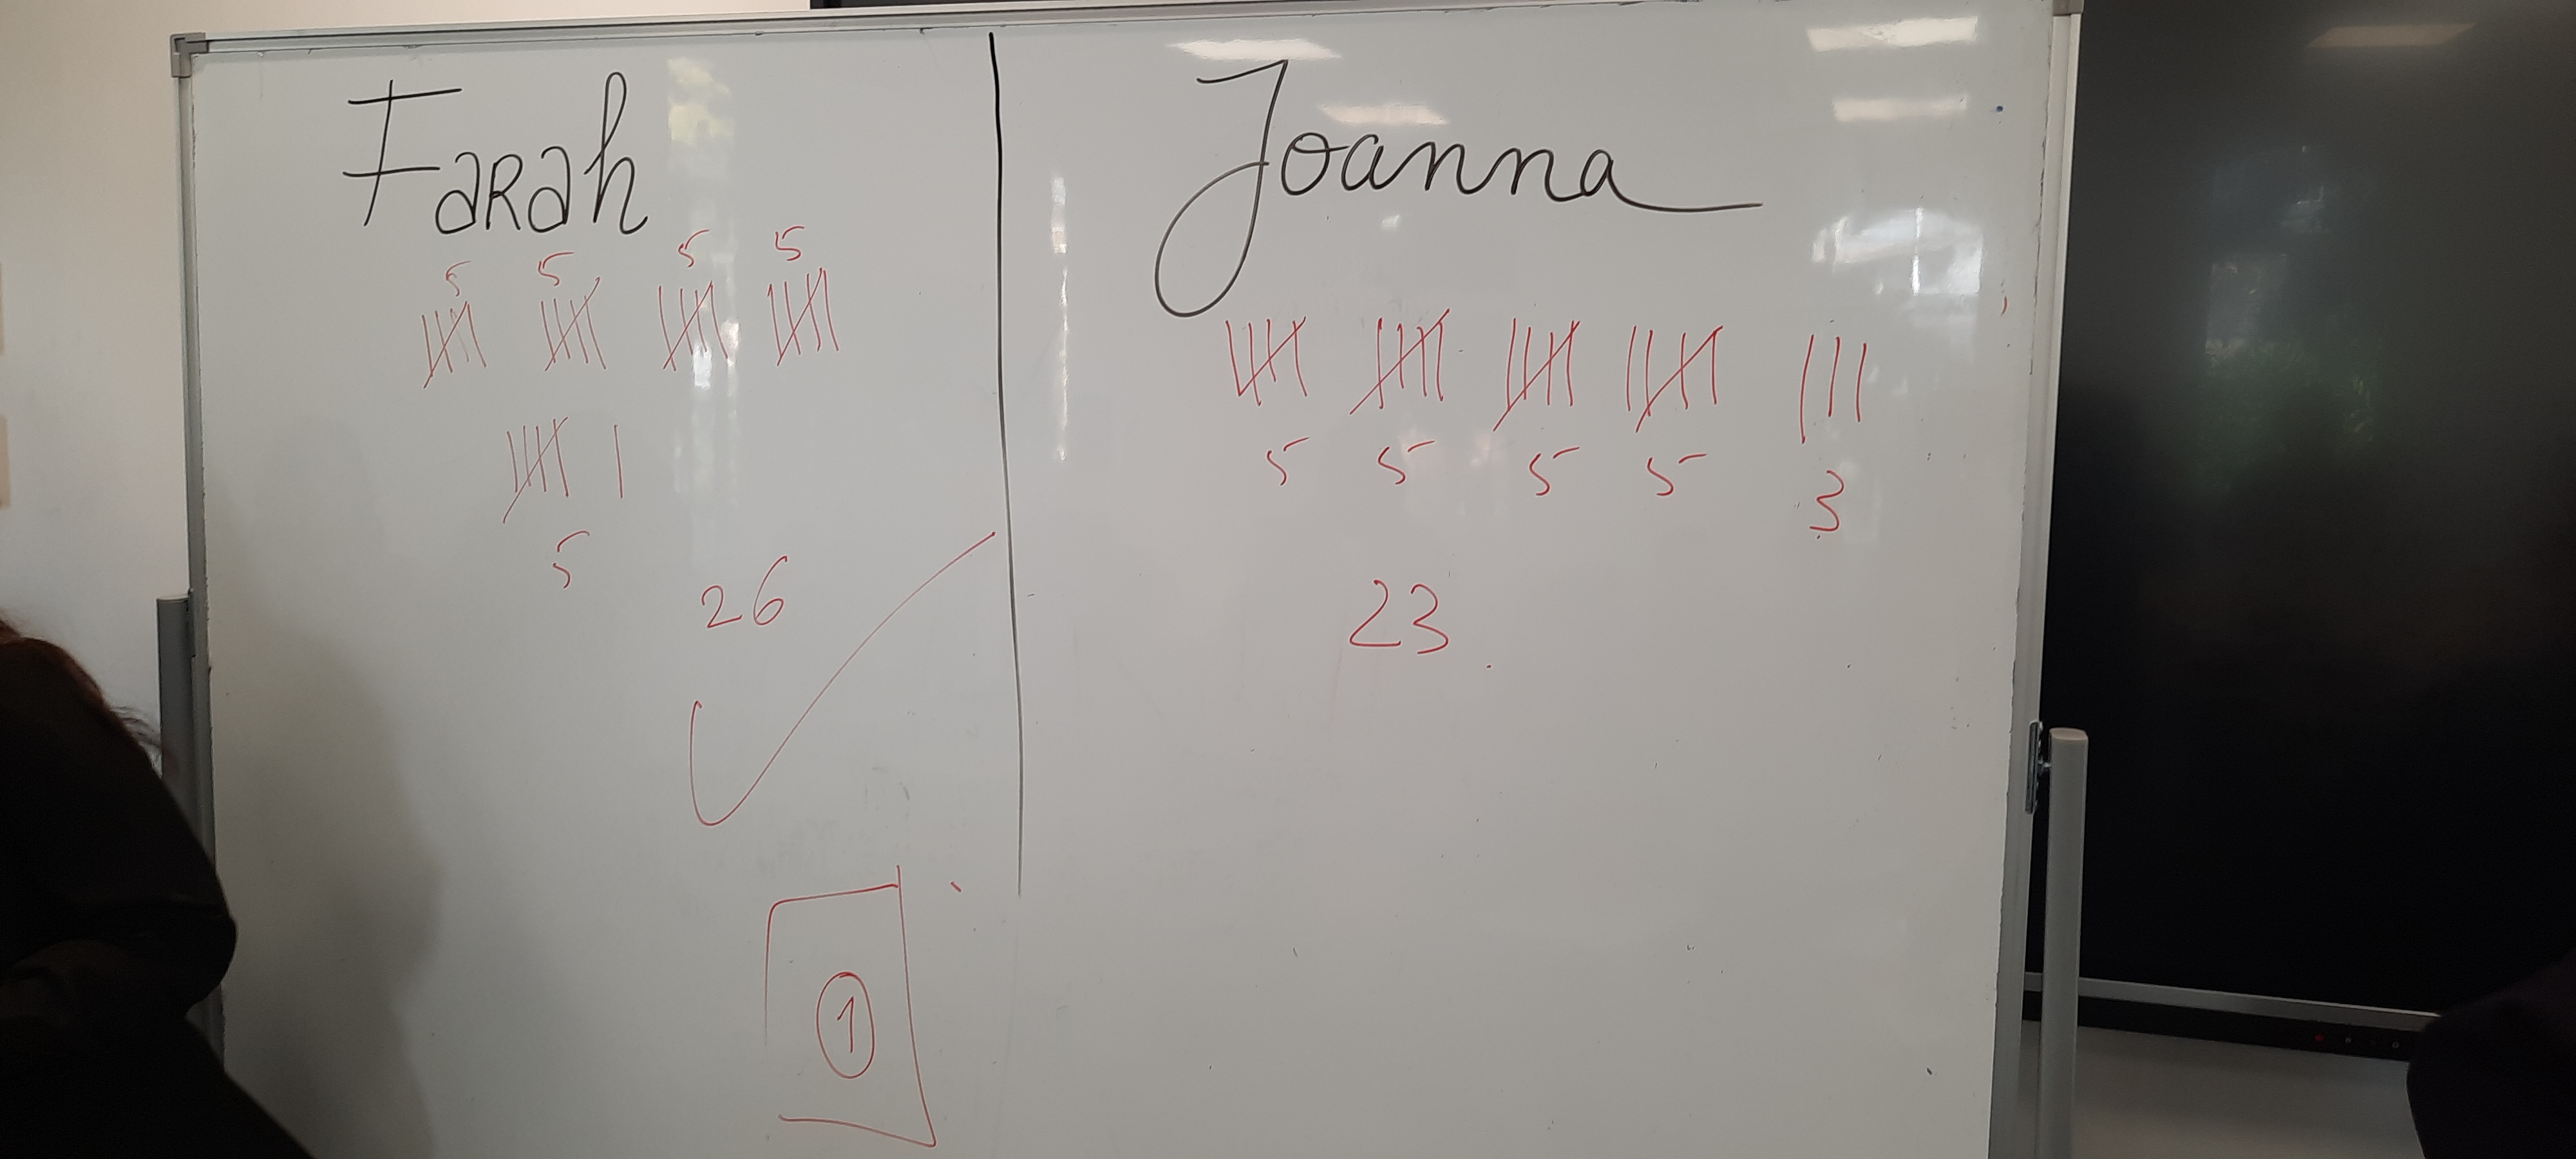 Farah
5 5 5 5
5
26
1
Joanna
5 5 5 5 3
23